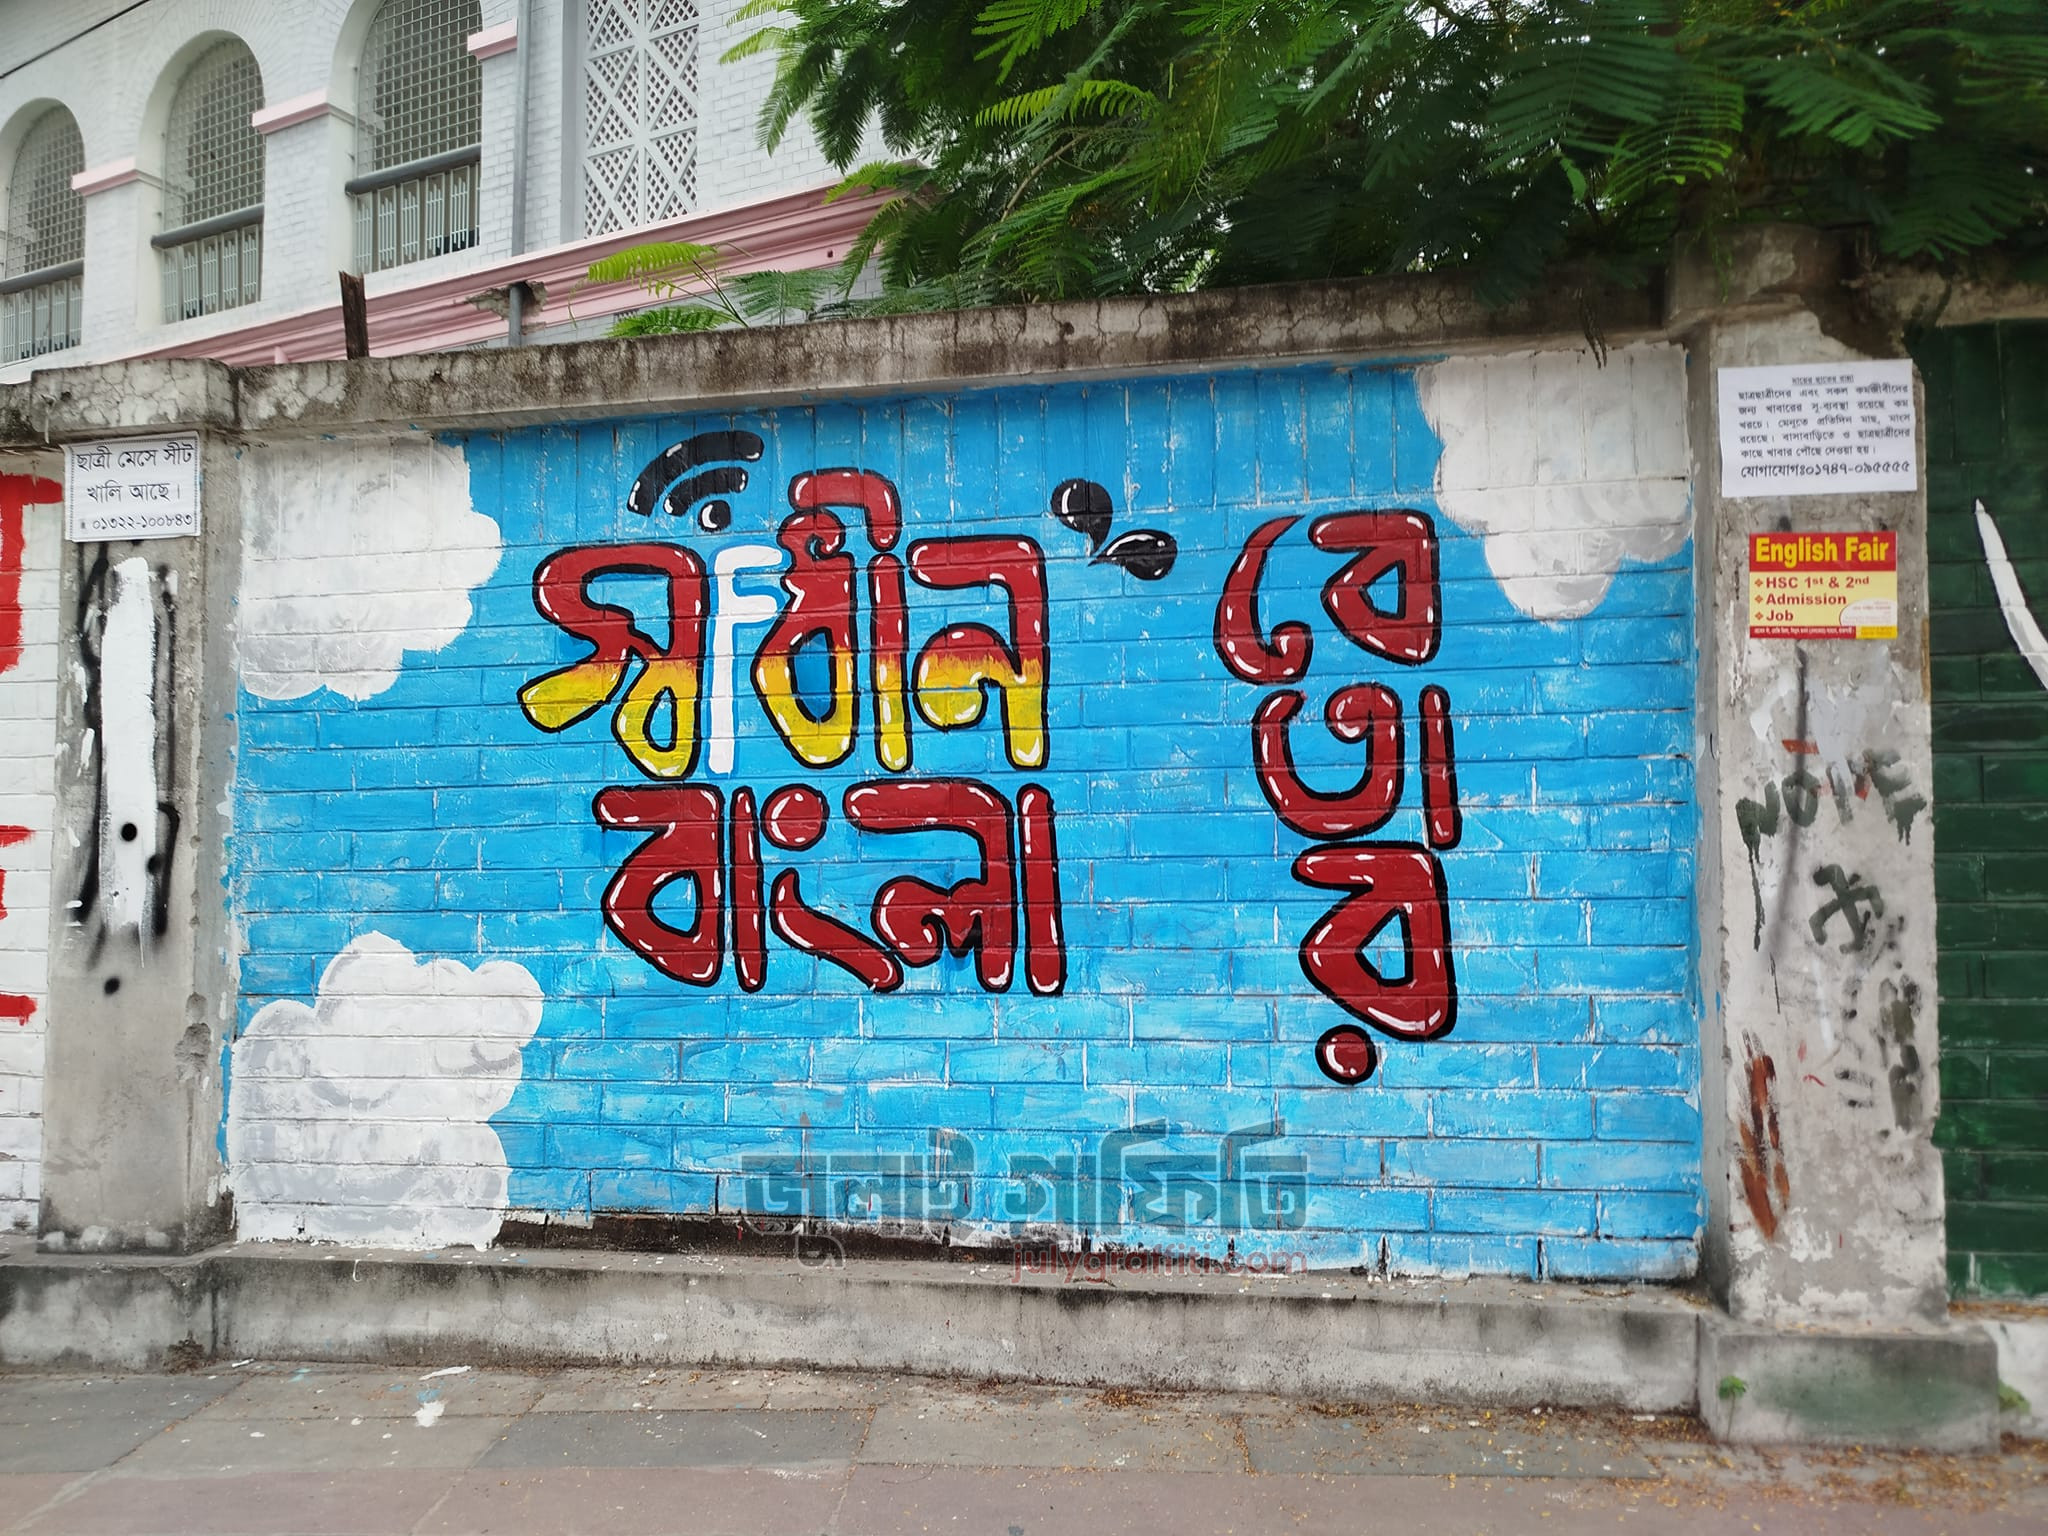 ছাত্রী মেসে সীট
খালি আছে।
০১৩২২-১০০৮৪৩
স্বাধীন
বাংলা
বে
তা
র
মায়ের হাতের রান্না
ছাত্রছাত্রীদের এবং সকল কর্মজীবীদের
জন্য খাবারের সু-ব্যবস্থা রয়েছে কম
খরচে। মেনুতে প্রতিদিন মাছ, মাংস
রয়েছে। বাসাবাড়িতে ও ছাত্রছাত্রীদের
কাছে খাবার পৌঁছে দেওয়া হয়।
যোগাযোগঃ০১৭৪৭-০৯৫৫৫৫
English Fair
HSC 1st & 2nd
Admission
Job
জুলাই গ্রাফিতি
julygraffiti.com